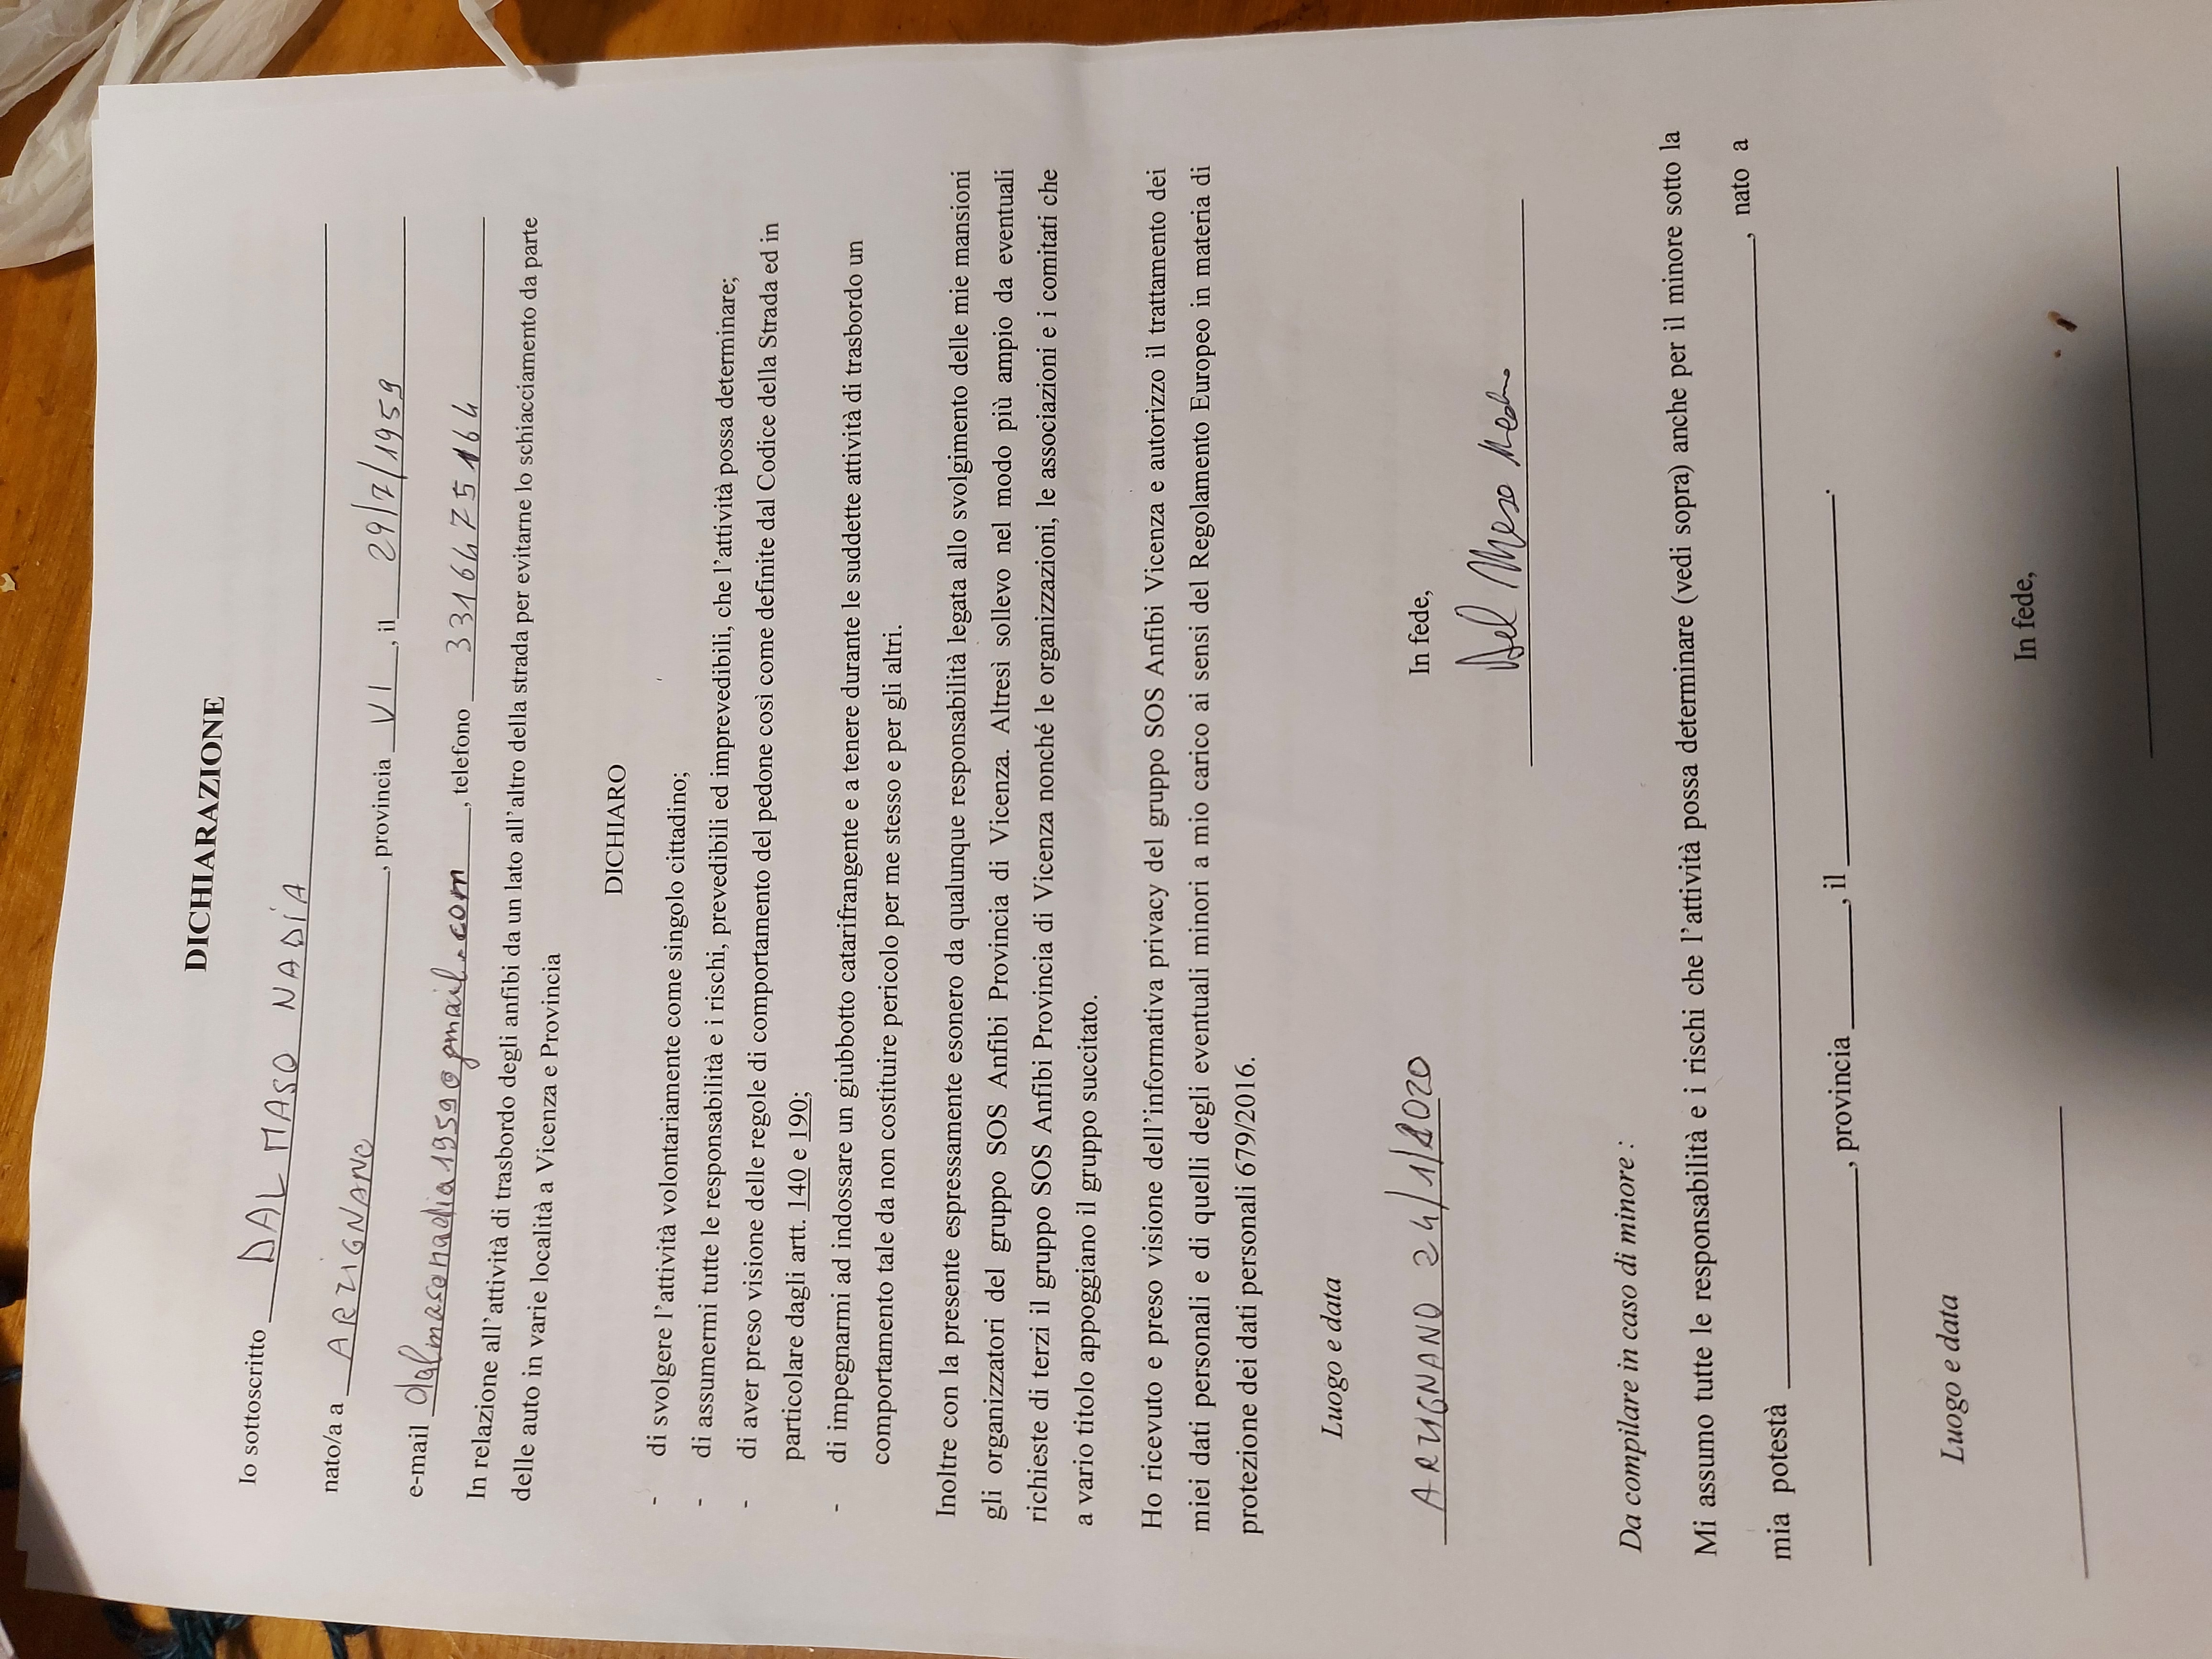 DICHIARAZIONE
Io sottoscritto DAL MASO NADIA
nato/a a ARZIGNANO, provincia VI, il 29/7/1959
e-mail dalmasonadia1959@gmail.com, telefono 3316475164
In relazione all'attività di trasbordo degli anfibi da un lato all'altro della strada per evitarne lo schiacciamento da parte
delle auto in varie località a Vicenza e Provincia
DICHIARO
- di svolgere l'attività volontariamente come singolo cittadino;
- di assumermi tutte le responsabilità e i rischi, prevedibili ed imprevedibili, che l'attività possa determinare;
- di aver preso visione delle regole di comportamento del pedone così come definite dal Codice della Strada ed in
particolare dagli artt. 140 e 190;
- di impegnarmi ad indossare un giubbotto catarifrangente e a tenere durante le suddette attività di trasbordo un
comportamento tale da non costituire pericolo per me stesso e per gli altri.
Inoltre con la presente espressamente esonero da qualunque responsabilità legata allo svolgimento delle mie mansioni
gli organizzatori del gruppo SOS Anfibi Provincia di Vicenza. Altresì sollevo nel modo più ampio da eventuali
richieste di terzi il gruppo SOS Anfibi Provincia di Vicenza nonché le organizzazioni, le associazioni e i comitati che
a vario titolo appoggiano il gruppo succitato.
Ho ricevuto e preso visione dell'informativa privacy del gruppo SOS Anfibi Vicenza e autorizzo il trattamento dei
miei dati personali e di quelli degli eventuali minori a mio carico ai sensi del Regolamento Europeo in materia di
protezione dei dati personali 679/2016.
Luogo e data
ARZIGNANO 24/1/2020
In fede,
Dal Maso Nadia
Da compilare in caso di minore :
Mi assumo tutte le responsabilità e i rischi che l'attività possa determinare (vedi sopra) anche per il minore sotto la
mia potestà , nato a
, provincia , il .
Luogo e data
In fede,